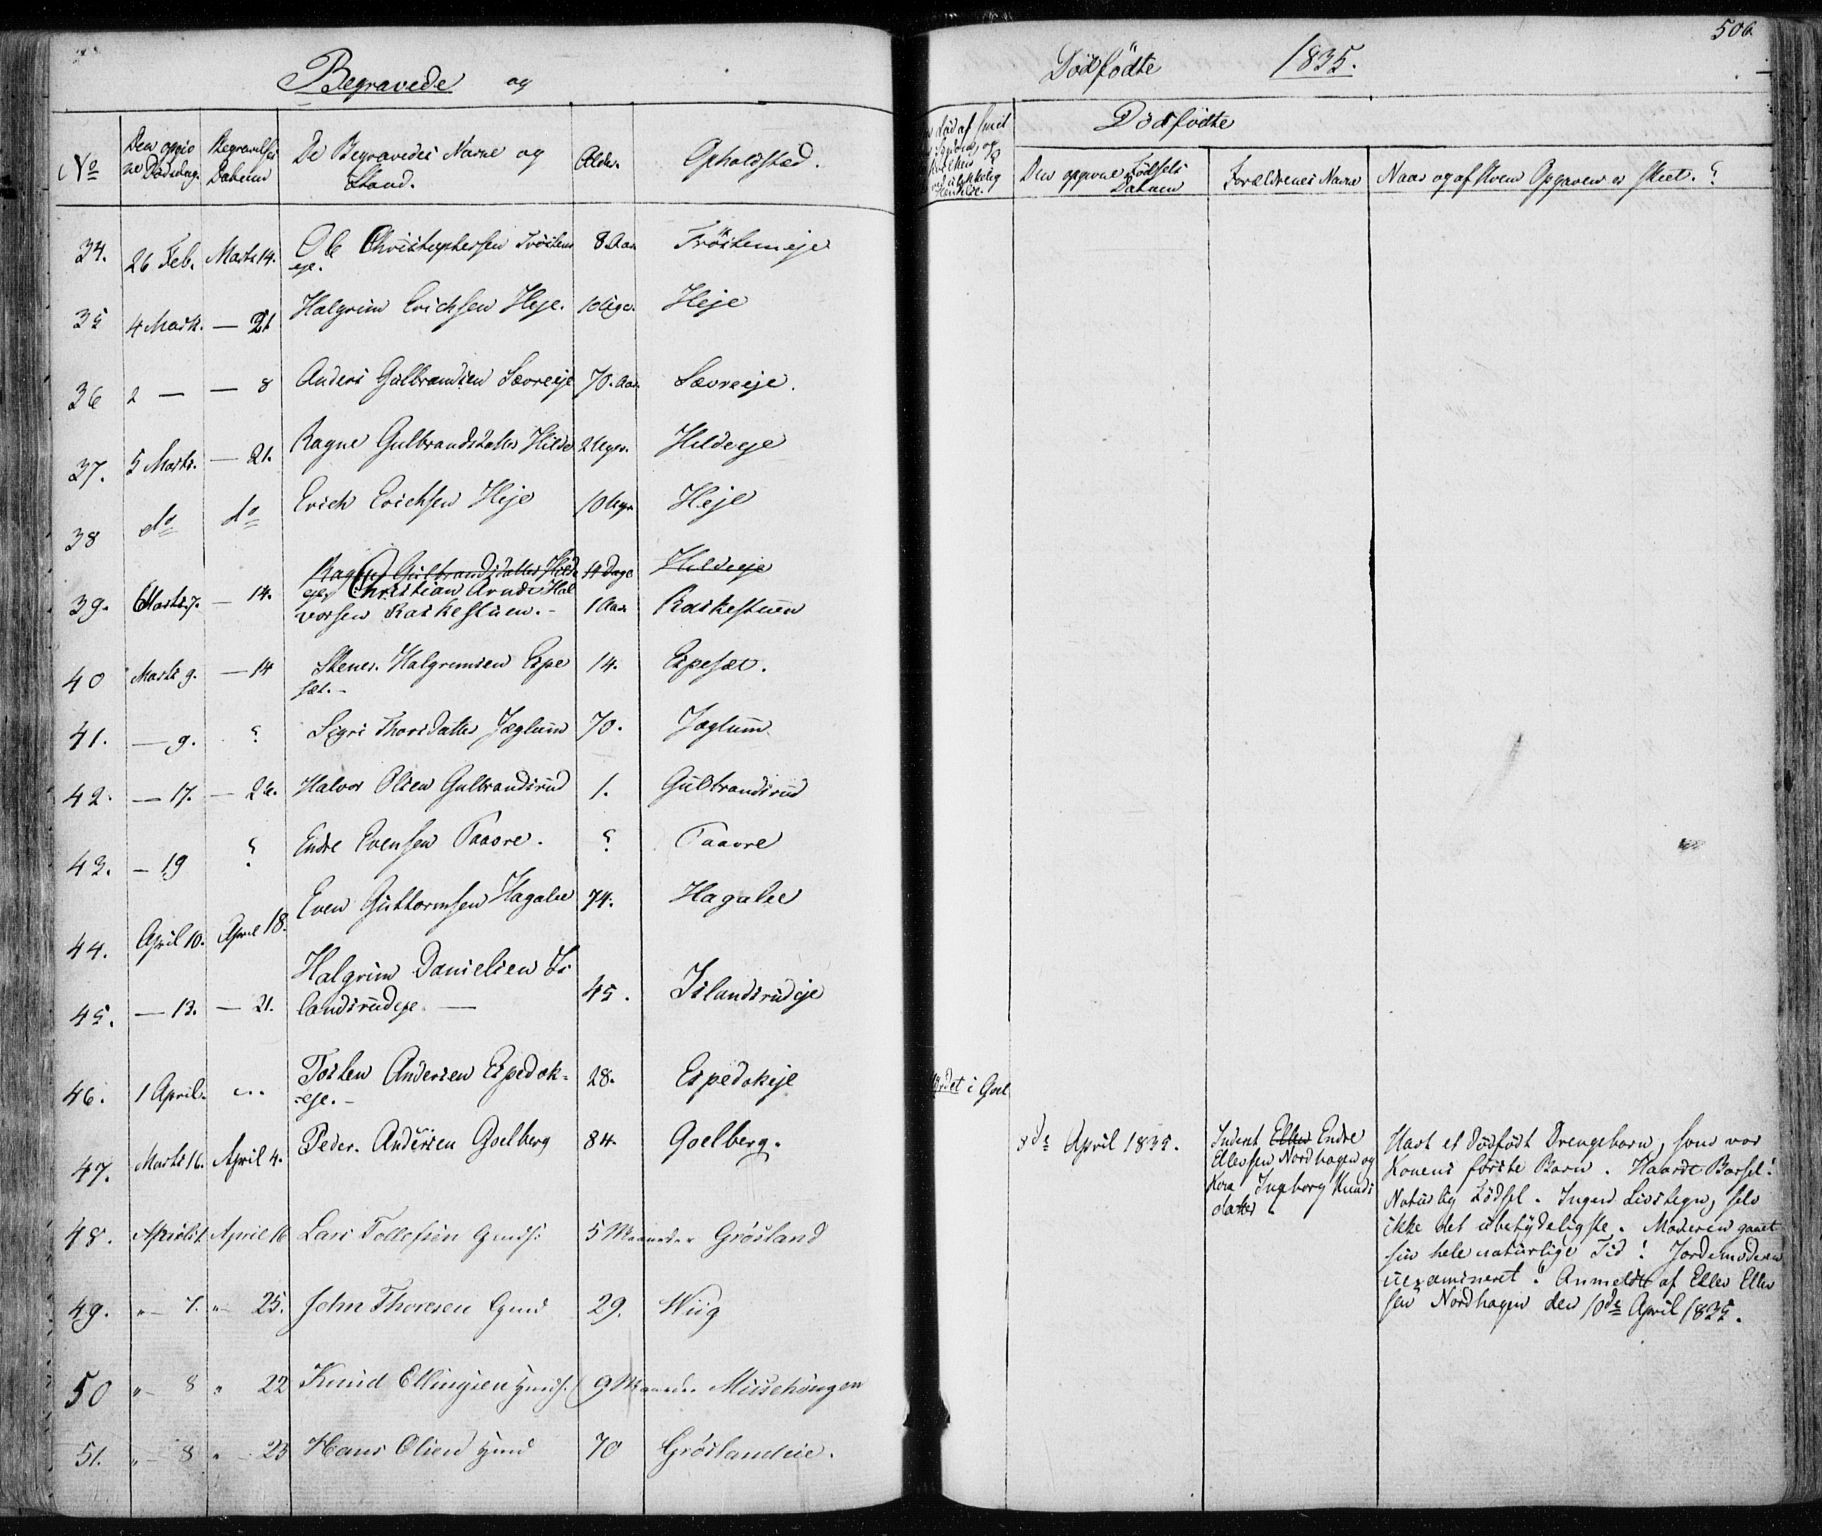 Begravede og
No Den opgivne Dødsdag. Begravelses Datum De Begravedes Navne og Stand. Alder. Opholdsted.
34. 26 Feb. Marts 14. Ole Christophersen Trøstem eje. 8 Aar Trøstemeje
35 4 Marts. — 21 Halgrim Erichsen Heje. 10 Uger. Heje
36 2 — — 8 Anders Gulbrandsen Sævreeje 70. Aar Sævreeje.
37. 5 Marts. — 21. Ragne Gulbrandsdatter Hilde 2 Uger. Hildeeje
38 do do Erich Erichsen Heje 10 Uger Heje
Ragne Gulbrandsdatter Hilde 14 Dage Hildeeje
39. Marts 7. — 14. eje Christian Arndt Hal
vorsen Raskestuen. - 1 Aar Raskestuen
40 Marts 9. — 14 Stener. Halgrimsen Espe
sæt. - 14. Espesæt.
41. — 9. ? Sigri Thorsdatter Jæglum 70. Jæglum
42. — 17. — 26. Halvor Olsen Gulbrandsrud 1. Gulbrandsrud
43. — 19 ? Endre Evensen Taaore. ? Taaore
44. April 10. April 18. Even Guttormsen Hagalie 74. Hagalie
45. — 13. — 21. Halgrim Danielsen Is
landsrudeje. — 45. Islandsrudeje
46. 1 April. ... Tosten Andersen Espedok-
-eje. - 28. Espedokeje
47. Marts 16. April 4. Peder. Andersen Goelberg 84. Goelberg.
48. April 1 April 16 Lars Tollefsen Gmds: 5 Maaneder Grøsland
49. "— 7. "— 25. John Thoresen Gmd 29. Wiig
50 "— 8 " 22 Knud Ellingsen Gmds. 9 Maaneder Musehongen
51. "— 8 "— 23 Hans Olsen Gmd 70 Grøslandeie.
506
Dødfødte 1835.
Dødfødte
død af
og
ved ulykkelig
Hændelse.
Den opgivne Fødsels Datum Forældrenes Navne Naar og af hvem Opgaven er skeet. ?
i Goel
8de April 1835.
Inderst Ellev Endre
Ellevsen Nordhagen og
Kone Ingeborg Knuds
datter
Havt et dødfødt Drengebarn, som var
Konens første Barn. Haardt Barsel!
Naturlig Fødsel. Ingen Livstegn, selv
ikke det ubetydeligste. Moderen gaaet
sin hele naturlige Tid! Jordemoderen
uexamineret. Anmeldt af Ellev Ellev
sen Nordhagen den 10de April 1835.